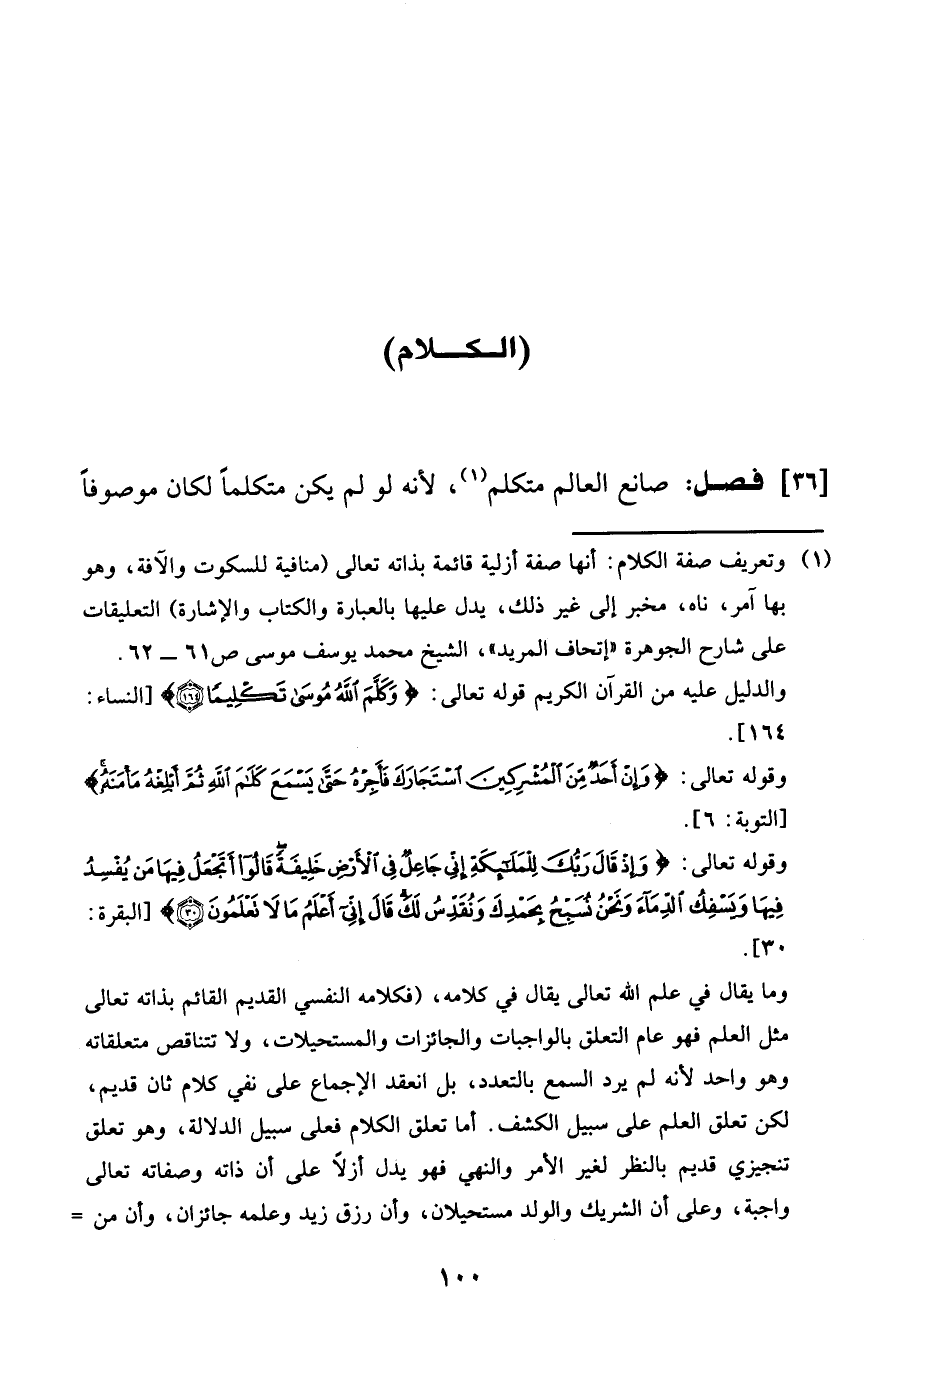 (الـكـــلام)
[٣٦] فـصـــل: صانع العالم متكلم(١)، لأنه لو لم يكن متكلماً لكان موصوفاً
(١) وتعريف صفة الكلام: أنها صفة أزلية قائمة بذاته تعالى (منافية للسكوت والآفة، وهو
بها آمر، ناه، مخبر إلى غير ذلك، يدل عليها بالعبارة والكتاب والإشارة) التعليقات
على شارح الجوهرة «إتحاف المريد»، الشيخ محمد يوسف موسى ص٦١ ـ ٦٢.
والدليل عليه من القرآن الكريم قوله تعالى: ﴿ وَكَلَّمَ ٱللَّهُ مُوسَىٰ تَكْلِيمًا ۝١٦٤﴾ [النساء:
١٦٤].
وقوله تعالى: ﴿ وَإِنْ أَحَدٌ مِّنَ ٱلْمُشْرِكِينَ ٱسْتَجَارَكَ فَأَجِرْهُ حَتَّىٰ يَسْمَعَ كَلَٰمَ ٱللَّهِ ثُمَّ أَبْلِغْهُ مَأْمَنَهُۥۚ﴾
[التوبة: ٦].
وقوله تعالى: ﴿ وَإِذْ قَالَ رَبُّكَ لِلْمَلَٰٓئِكَةِ إِنِّى جَاعِلٌ فِى ٱلْأَرْضِ خَلِيفَةً ۖ قَالُوٓا۟ أَتَجْعَلُ فِيهَا مَن يُفْسِدُ
فِيهَا وَيَسْفِكُ ٱلدِّمَآءَ وَنَحْنُ نُسَبِّحُ بِحَمْدِكَ وَنُقَدِّسُ لَكَ ۖ قَالَ إِنِّىٓ أَعْلَمُ مَا لَا تَعْلَمُونَ ۝٣٠﴾ [البقرة:
٣٠].
وما يقال في علم الله تعالى يقال في كلامه، (فكلامه النفسي القديم القائم بذاته تعالى
مثل العلم فهو عام التعلق بالواجبات والجائزات والمستحيلات، ولا تتناقص متعلقاته
وهو واحد لأنه لم يرد السمع بالتعدد، بل انعقد الإجماع على نفي كلام ثان قديم،
لكن تعلق العلم على سبيل الكشف. أما تعلق الكلام فعلى سبيل الدلالة، وهو تعلق
تنجيزي قديم بالنظر لغير الأمر والنهي فهو يدل أزلاً على أن ذاته وصفاته تعالى
واجبة، وعلى أن الشريك والولد مستحيلان، وأن رزق زيد وعلمه جائزان، وأن من =
١٠٠